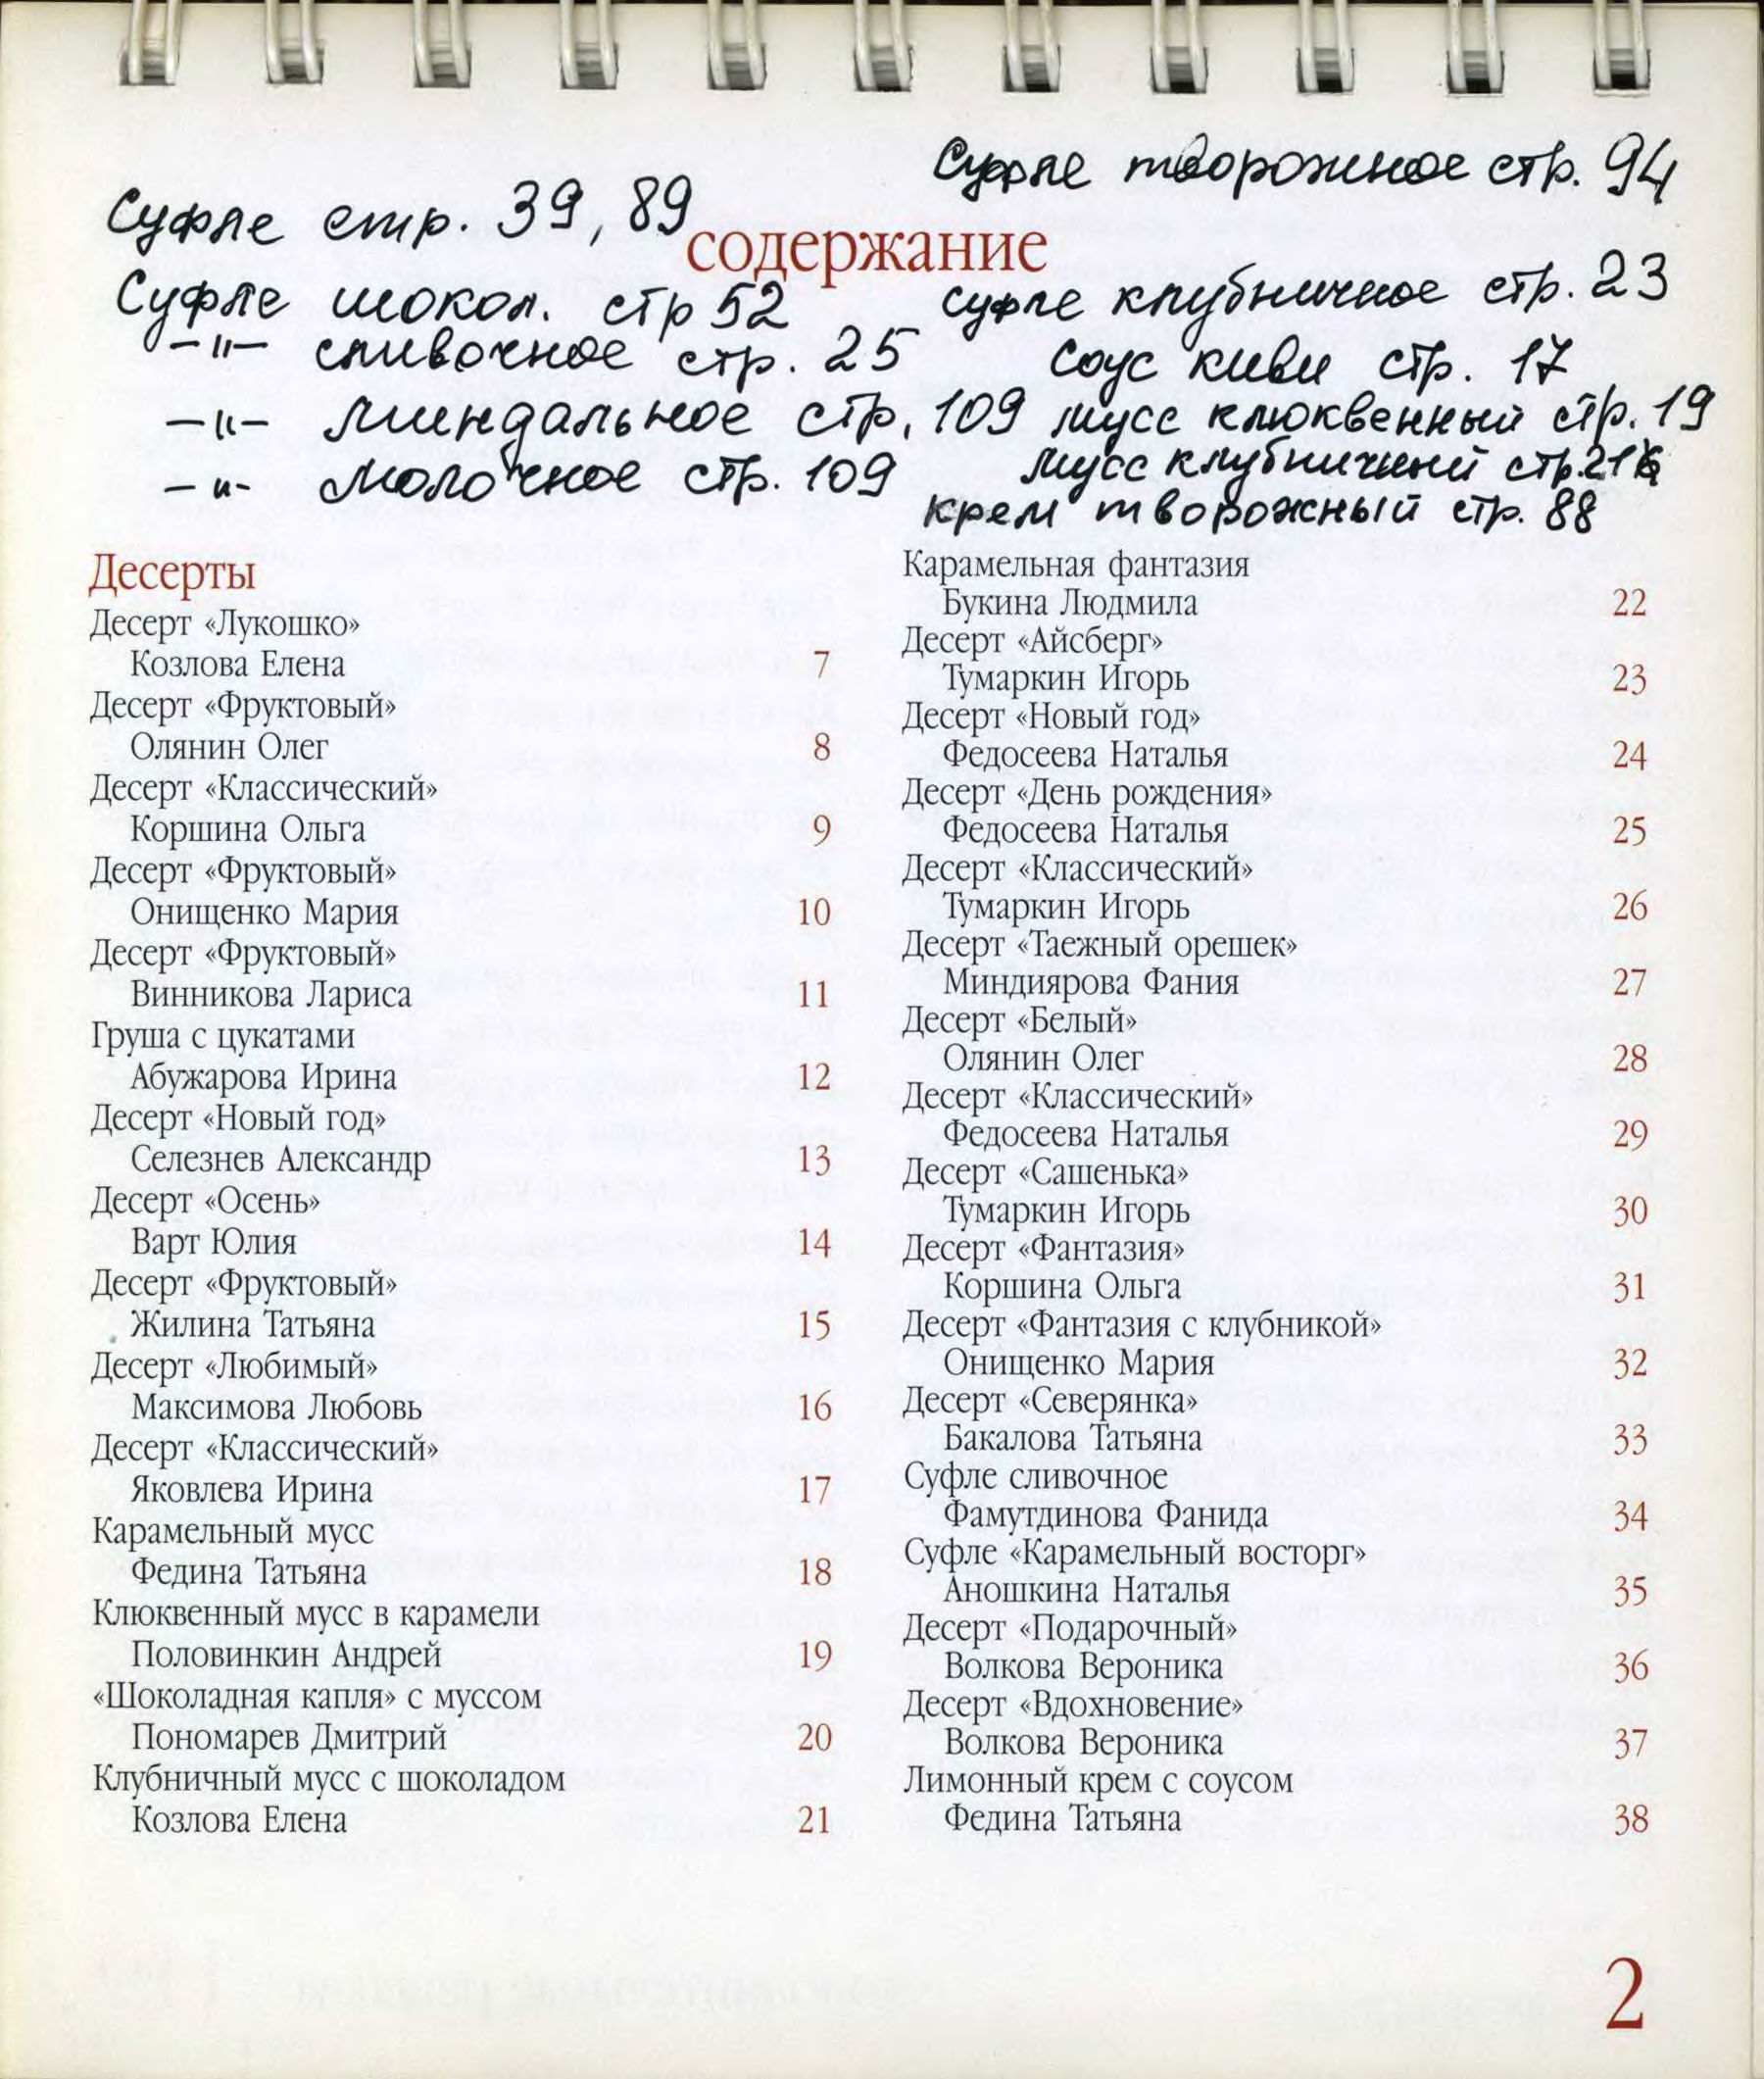 Суфле творожное стр. 94
Суфле стр. 39, 89
содержание
Суфле шокол. стр 52
суфле клубничное стр. 23
–"– сливочное стр. 25
соус киви стр. 17
–"– миндальное стр. 109
мусс клюквенный стр. 19
–"– молочное стр. 109
мусс клубничный стр. 21
крем творожный стр. 88
Десерты
Десерт «Лукошко»
Козлова Елена 7
Десерт «Фруктовый»
Олянин Олег 8
Десерт «Классический»
Коршина Ольга 9
Десерт «Фруктовый»
Онищенко Мария 10
Десерт «Фруктовый»
Винникова Лариса 11
Груша с цукатами
Абужарова Ирина 12
Десерт «Новый год»
Селезнев Александр 13
Десерт «Осень»
Варт Юлия 14
Десерт «Фруктовый»
Жилина Татьяна 15
Десерт «Любимый»
Максимова Любовь 16
Десерт «Классический»
Яковлева Ирина 17
Карамельный мусс
Федина Татьяна 18
Клюквенный мусс в карамели
Половинкин Андрей 19
«Шоколадная капля» с муссом
Пономарев Дмитрий 20
Клубничный мусс с шоколадом
Козлова Елена 21
Карамельная фантазия
Букина Людмила 22
Десерт «Айсберг»
Тумаркин Игорь 23
Десерт «Новый год»
Федосеева Наталья 24
Десерт «День рождения»
Федосеева Наталья 25
Десерт «Классический»
Тумаркин Игорь 26
Десерт «Таежный орешек»
Миндиярова Фания 27
Десерт «Белый»
Олянин Олег 28
Десерт «Классический»
Федосеева Наталья 29
Десерт «Сашенька»
Тумаркин Игорь 30
Десерт «Фантазия»
Коршина Ольга 31
Десерт «Фантазия с клубникой»
Онищенко Мария 32
Десерт «Северянка»
Бакалова Татьяна 33
Суфле сливочное
Фамутдинова Фанида 34
Суфле «Карамельный восторг»
Аношкина Наталья 35
Десерт «Подарочный»
Волкова Вероника 36
Десерт «Вдохновение»
Волкова Вероника 37
Лимонный крем с соусом
Федина Татьяна 38
2